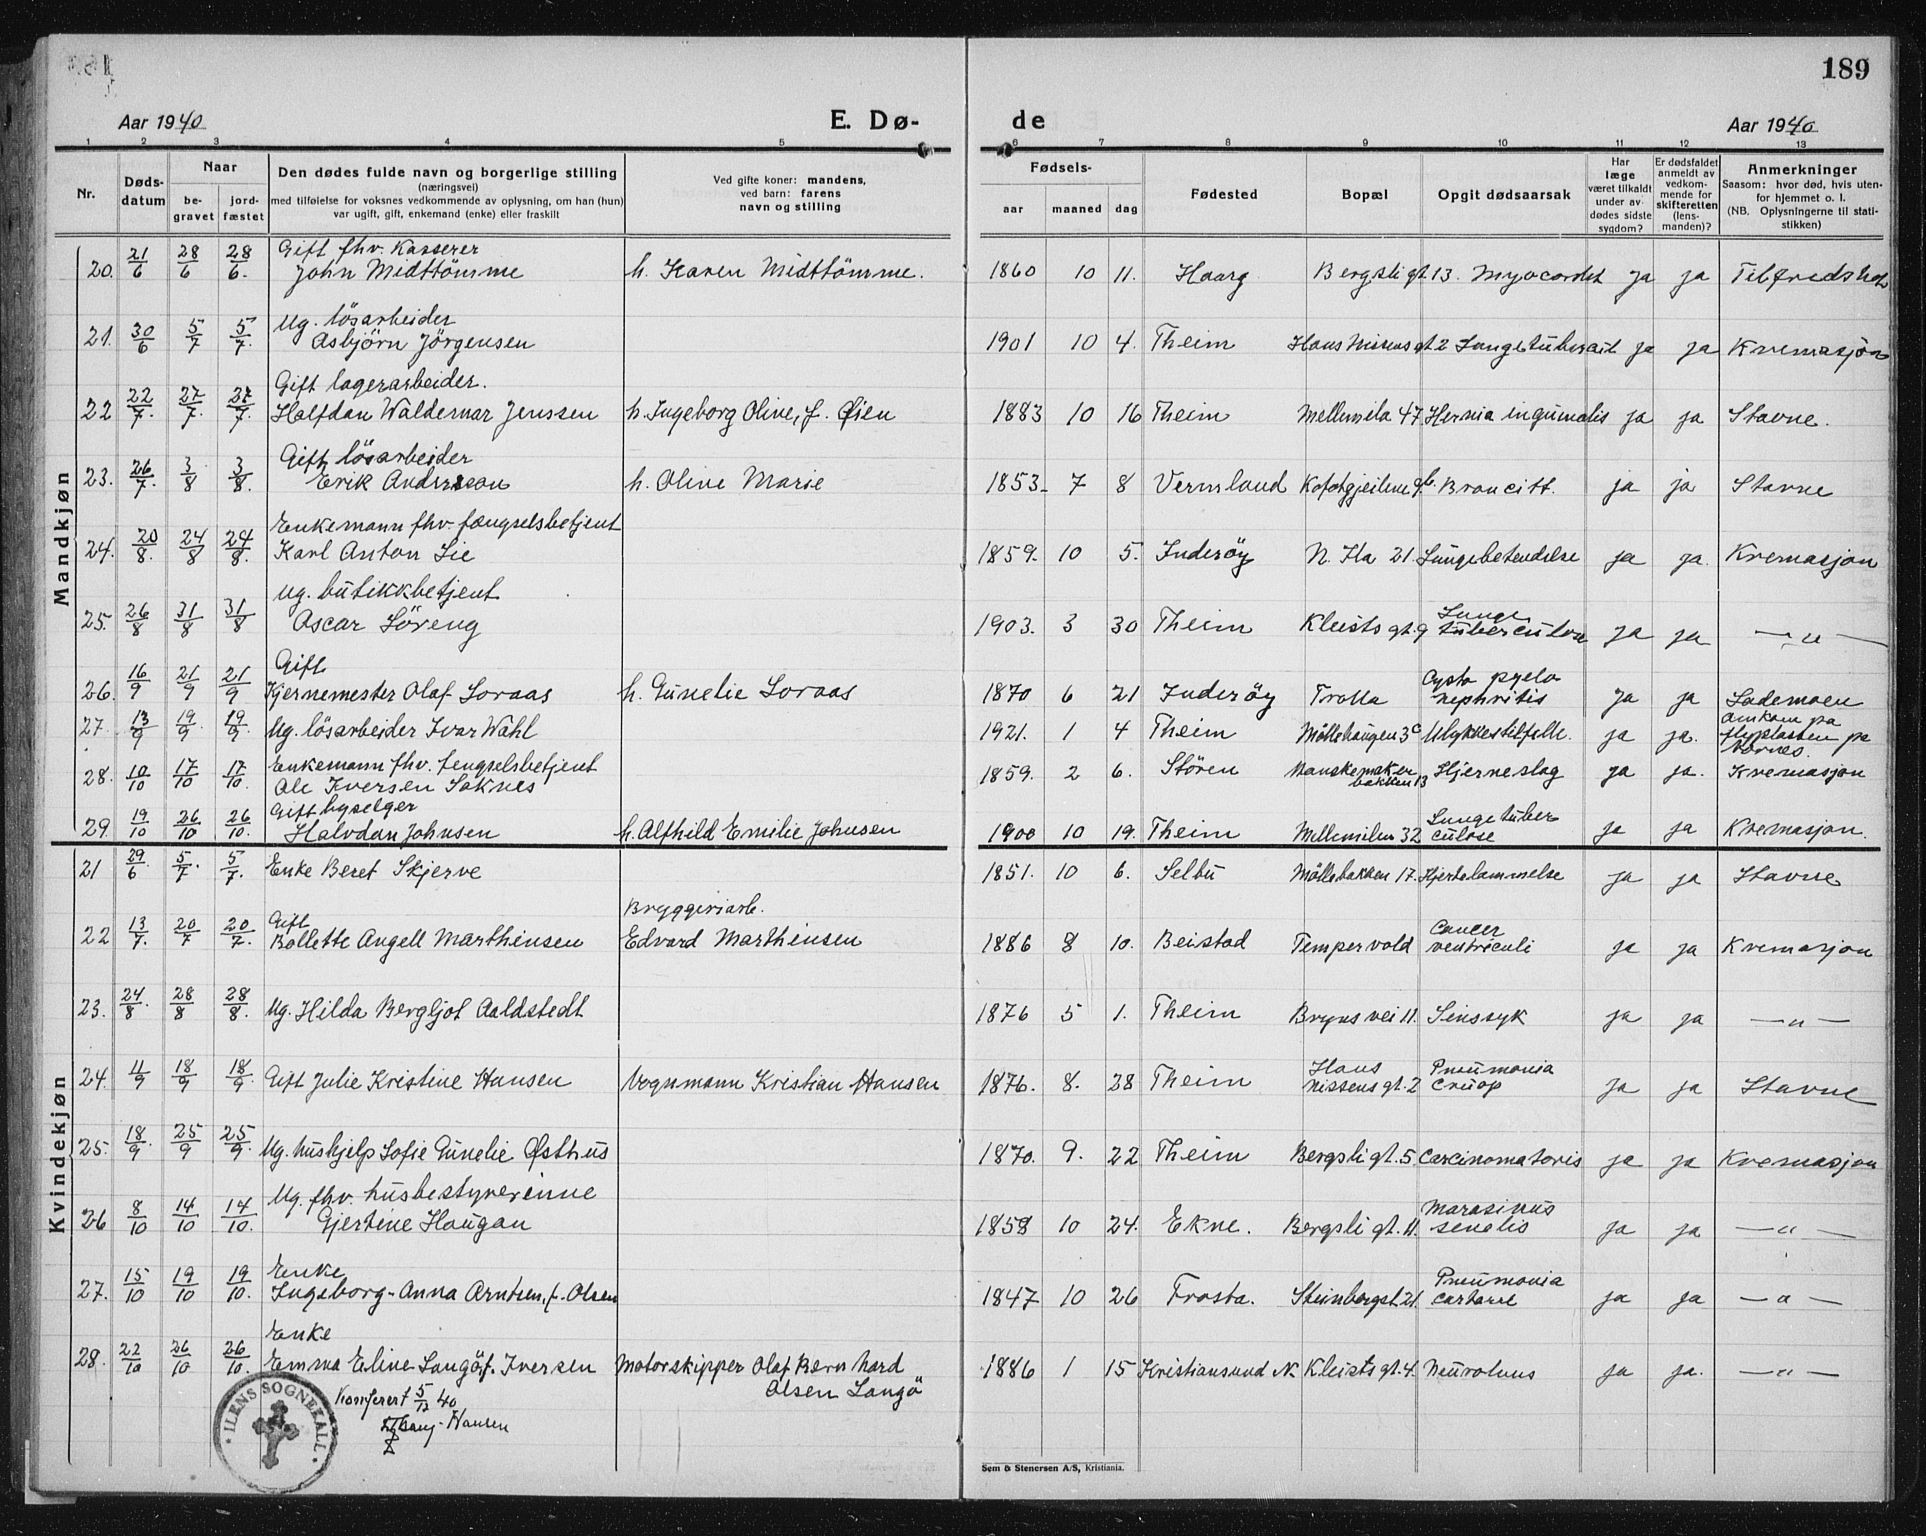 189
Aar 1940 E. Dø- de Aar 1940
1 2 3 4 5 6 7 8 9 10 11 12 13
Nr. Døds-datum Naar be-gravet jord-fæstet Den dødes fulde navn og borgerlige stilling (næringsvei) med tilføielse for voksnes vedkommende av oplysning, om han (hun) var ugift, gift, enkemand (enke) eller fraskilt Ved gifte koner: mandens, ved barn: farens navn og stilling Fødsels- aar maaned dag Fødested Bopæl Opgit dødsaarsak Har læge været tilkaldt under av-dødes sidste sygdom? Er dødsfaldet anmeldt av vedkom-mende for skifteretten (lens-manden)? Anmerkninger Saasom: hvor død, hvis uten-for hjemmet o. l. (NB. Oplysningerne til stati-stikken)
Mandkjøn
20. 21/6 28/6 28/6. Gift fhv. Kasserer John Midttömme h. Karen Midttömme. 1860 10 11. Haarg Bergsli gt 13. Myocardit ja ja Tilfredshet
21. 30/6 5/7 5/7. Ug. lösarbeider Asbjörn Jörgensen 1901 10 4. Theim Hans Nissens gt. 2 Lungetubercul ja ja Kremasjon
22 22/7. 27/7. 27/7. Gift lagerarbeider. Halfdan Waldemar Jenssen h. Ingeborg Olive, f. Øien 1883 10 16 Theim Mellemila 47 Hernia inguinalis ja ja Stavne.
23. 26/7. 3/8 3/8. Gift lösarbeider Erik Andersson h. Oline Marie 1853 7 8 Vermland Kofotgjeilene 9b. Broncitt. ja ja Stavne
24. 20/8. 24/8 24/8. Enkemann fhv. fængselsbetjent Karl Anton Lie 1859. 10 5. Inderöy N. Ila 21. Lungebetendelse ja ja. Kremasjon
25. 26/8 31/8 31/8 Ug. butikkbetjent Ascar Söreng 1903. 3 30 Theim Kleists gt. 9 Lunge tuberculose ja ja —"—
26. 16/9 21/9 21/9 Gift Gjernemester Olaf Soraas h. Gunelie Soraas 1870 6 21 Inderöy Trolla Cysto pyelo nephritis ja ja Lademoen
27. 13/9 19/9. 19/9. Ug. lösarbeider Ivar Wahl 1921. 1 4 Theim Möllehaugen 3c Ulykkestilfelle. ja ja. Omkom på flyplassen på Værnes.
28. 10/10 17/10 17/10. Enkemann fhv. fengselsbetjent Ole Iversen Soknes 1859. 2 6. Stören Hanskemaker bakken 13 Hjerneslag ja ja. Kremasjon
29. 19/10 26/10 26/10. Gift byselger Halvdan Johnsen h. Alfhild Emilie Johnsen 1900 10 19. Theim Mellemilen 32 Lungetuber culose ja ja Kremasjon.
Kvindekjøn
21 29/6 5/7. 5/7. Enke Beret Skjerve 1851. 10 6. Selbu Möllebakken 17. Hjertelammelse ja ja Stavne
22 13/7. 20/7 20/7. Gift Bollette Angell Marthinsen Bryggeriarb. Edvard Marthinsen 1886 8 10. Beistad Tempervold Cancer ventriculi ja ja Kremasjon
23. 24/8. 28/8 28/8. Ug. Hilda Bergljot Aaldstedt 1876 5 1. Theim Bryns vei 11. Sinssyk ja ja —"—
24. 11/9 18/9 18/9. Gift Julie Kristine Hansen Vognmann Kristian Hansen 1876. 8. 28 Theim Hans Nissens gt. 2 Pneumonia cruop ja ja Stavne
25. 18/9. 25/9 25/9. Ug. hushjelp Sofie Gunelie Østhus 1870. 9. 22 Theim Bergsli gt. 5 Carcinomatoris ja ja Kremasjon
26 8/10 14/10 14/10. Ug. fhv. husbestyrerinne Gjertine Haugan 1858 10 24. Ekne. Bergsli gt. 11. Marasinus senelis ja ja —"—
27. 15/10 19/10 19/10. Enke Ingeborg-Anna Arntsen, f. Olsen 1847 10 26 Frosta. Steinbergst 21. Pneumonia ja ja —"—
28. 22/10 26/10 26/10. Enke Emma Eline Langö, f. Iversen Motorskipper Olaf Bernhard Olsen Langö 1886 1 15 Kristiansund N. Kleists gt. 4. ja ja. —"—
Konferert 5/12 40
Hansen
ILENS SOGNEKALL
Sem & Stenersen A/S, Kristiania.